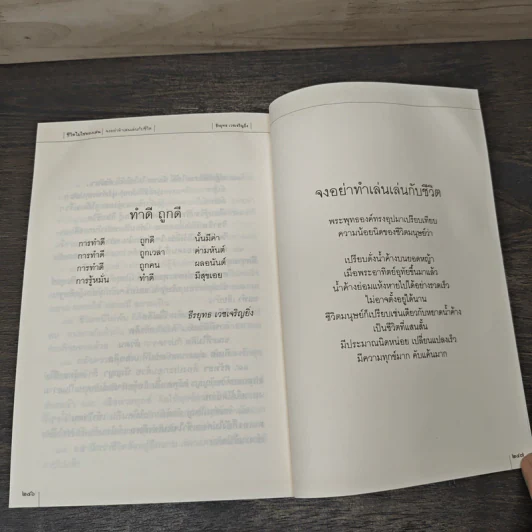 ชีวิตไม่ใช่ของเล่น | จงอย่าทำเล่นเล่นกับชีวิต
ธีรยุทธ เวชเจริญยิ่ง
ทำดี ถูกดี
การทำดี ถูกดี นั้นมีค่า
การทำดี ถูกเวลา ค่ามหันต์
การทำดี ถูกคน ผลอนันต์
การรู้หมั่น ทำดี มีสุขเอย
ธีรยุทธ เวชเจริญยิ่ง
๒๔๖
จงอย่าทำเล่นเล่นกับชีวิต
พระพุทธองค์ทรงอุปมาเปรียบเทียบ
ความน้อยนิดของชีวิตมนุษย์ว่า
เปรียบดั่งน้ำค้างบนยอดหญ้า
เมื่อพระอาทิตย์อุทัยขึ้นมาแล้ว
น้ำค้างย่อมแห้งหายไปได้อย่างรวดเร็ว
ไม่อาจตั้งอยู่ได้นาน
ชีวิตมนุษย์ก็เปรียบเช่นเดียวกับหยาดน้ำค้าง
เป็นชีวิตที่แสนสั้น
มีประมาณนิดหน่อย เปลี่ยนแปลงเร็ว
มีความทุกข์มาก คับแค้นมาก